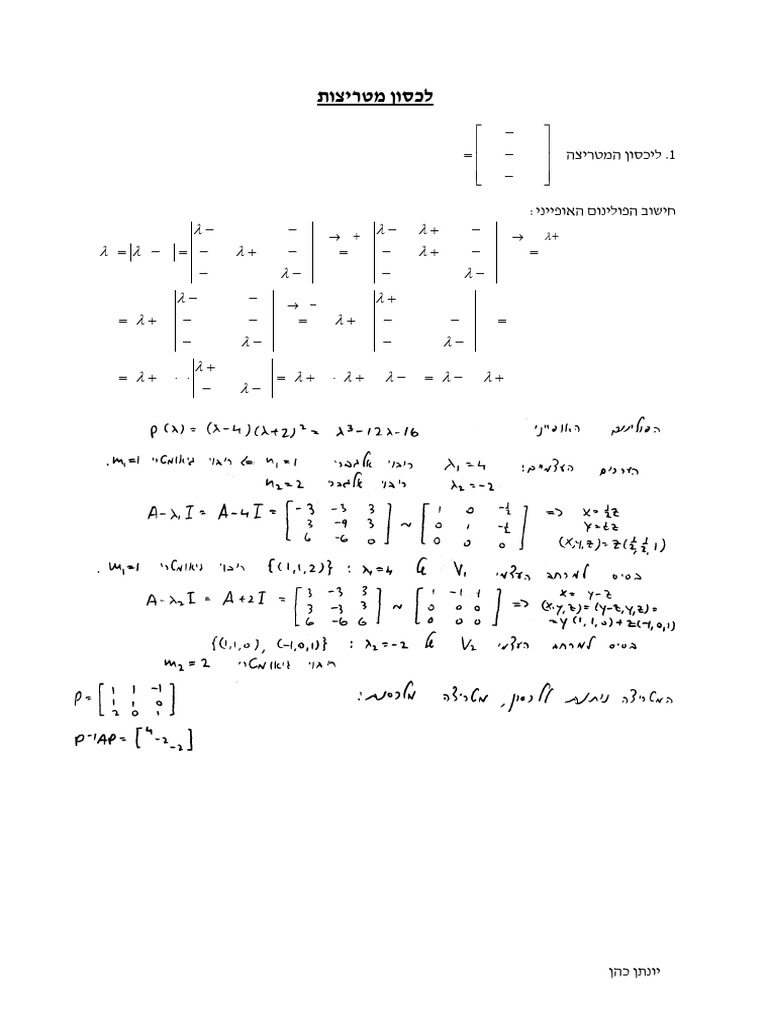 לכסון מטריצות
1. ליכסון המטריצה = [ − − − ]
חישוב הפולינום האופייני :
λ = |λ − | = | λ− − − λ+ − − λ− | → + = | λ− λ+ − − λ+ − − λ− | → λ+ =
= λ+ | λ− − − − − λ− | → − = λ+ | λ+ − − − λ− | =
= λ+ · · | λ+ − λ− | = λ+ · λ+ λ− = λ− λ+
הפולינום האופייני p(λ) = (λ-4)(λ+2)² = λ³-12λ-16
הערכים העצמיים: λ₁=4 ריבוי אלגברי n₁=1 <= ריבוי גיאומטרי m₁=1.
λ₂=-2 ריבוי אלגברי n₂=2
A-λ₁I = A-4I = [ -3 -3 3 / 3 -9 3 / 6 -6 0 ] ~ [ 1 0 -½ / 0 1 -½ / 0 0 0 ] => x=½z
y=½z
(x,y,z)=z(½,½,1)
בסיס למרחב העצמי V₁ של λ₁=4 : {(1,1,2)} ריבוי גיאומטרי m₁=1.
A-λ₂I = A+2I = [ 3 -3 3 / 3 -3 3 / 6 -6 6 ] ~ [ 1 -1 1 / 0 0 0 / 0 0 0 ] => x = y-z
(x,y,z)=(y-z,y,z)=
=y(1,1,0)+z(-1,0,1)
בסיס למרחב העצמי V₂ של λ₂=-2 : {(1,1,0), (-1,0,1)}
ריבוי גיאומטרי m₂=2
המטריצה ניתנת ללכסון, מטריצה מלכסנת: P = [ 1 1 -1 / 1 1 0 / 2 0 1 ]
P⁻¹AP = [ 4 -2 -2 ]
יונתן כהן